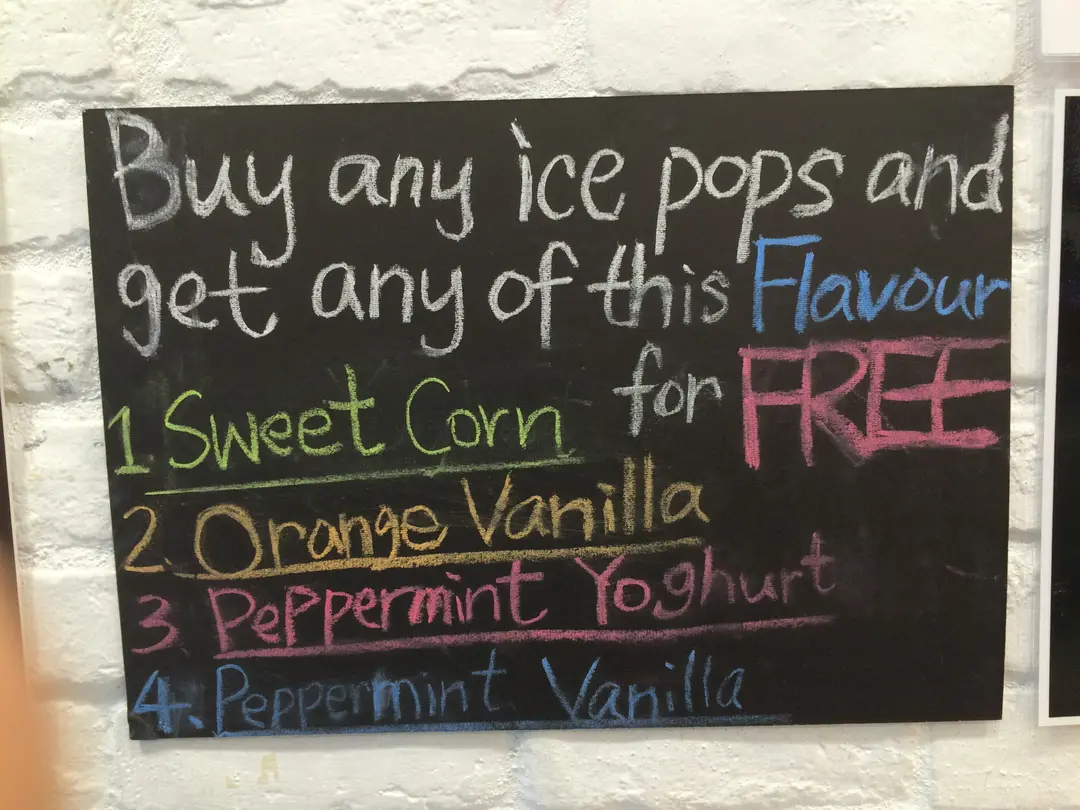 Buy any ice pops and
get any of this Flavour
for FREE
1 Sweet Corn
2. Orange Vanilla
3. Peppermint Yoghurt
4. Peppermint Vanilla